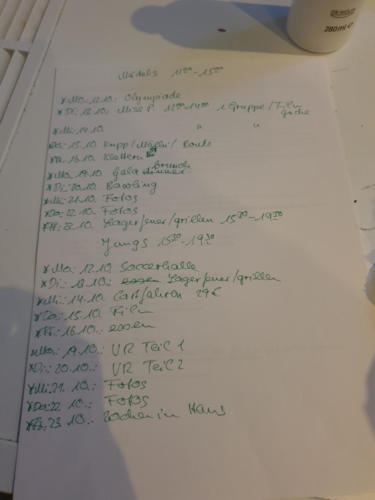 280 ml e
Mädels 11⁰⁰-15⁰⁰
*Mo: 12.10. Olympiade
*Di: 13.10. Miss P. 12⁰⁰-14⁰⁰ 1 Gruppe/Film
*Mi: 14.10. " "
Do: 15.10.
16.10. Klettern
*Mo: 19.10. Gala Brunch
*Di: 20.10. Bowling
*Mi: 21.10. Fotos
*Do: 22.10. Fotos
10. Lagerfeuer/grillen 15³⁰-19³⁰
Jungs 15³⁰-19³⁰
*Mo: 12.10. Soccerhalle
*Di: 13.10. Lagerfeuer/grillen
*Mi: 14.10. Cartfahren 29€
*Do: 15.10. Film
*Fr: 16.10. essen
*Mo: 19.10.: VR Teil 1
*Di: 20.10.: VR Teil 2
*Mi: 21. 10.: Fotos
*Do: 22 10.: Fotos
*Fr: 23 10.: Kochen im Haus